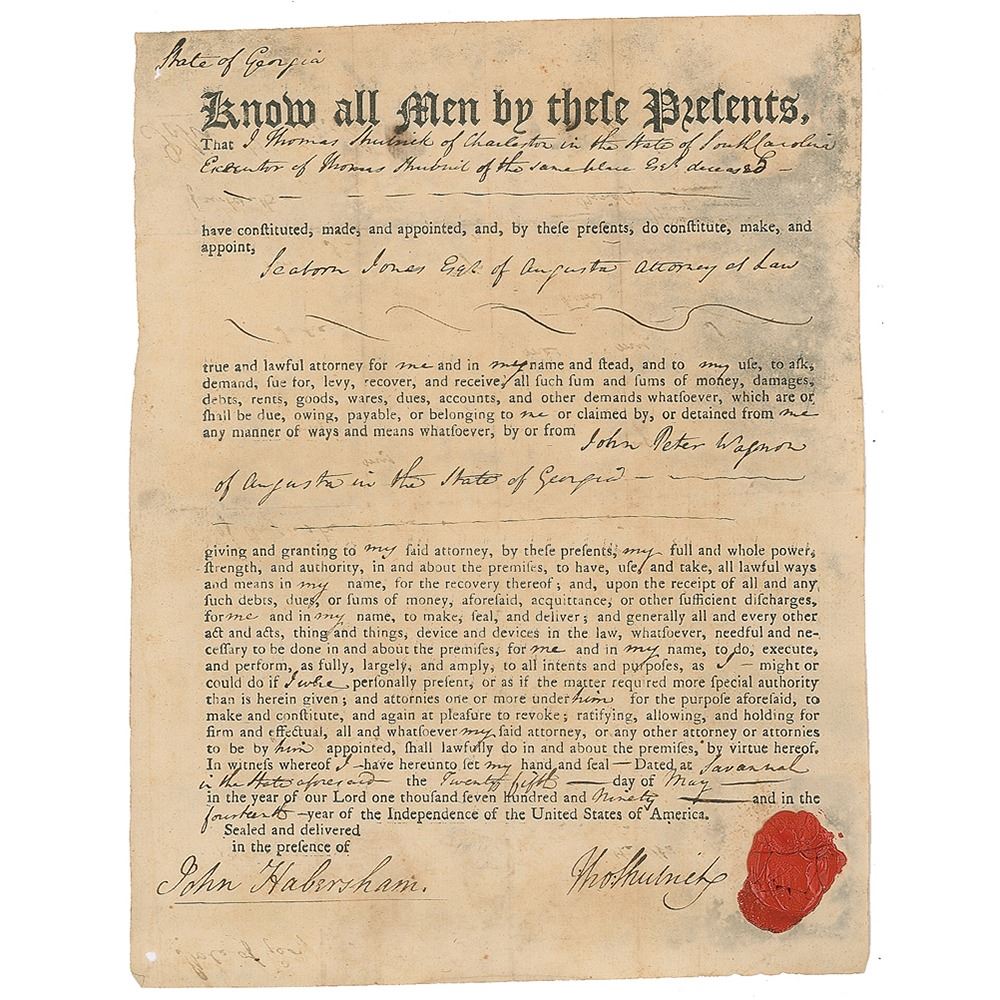 State of Georgia
Know all Men by theſe Preſents,
That I Thomas Shubrick of Charleston in the State of South Carolina
Executor of Thomas Shubrick of the same place Esqr. deceased —
have conſtituted, made, and appointed, and, by theſe preſents, do conſtitute, make, and
appoint,
Seaborn Jones Esqr. of Augusta Attorney at Law
true and lawful attorney for me and in my name and ſtead, and to my uſe, to aſk,
demand, ſue for, levy, recover, and receive, all ſuch ſum and ſums of money, damages,
debts, rents, goods, wares, dues, accounts, and other demands whatſoever, which are or
ſhall be due, owing, payable, or belonging to me or claimed by, or detained from me
any manner of ways and means whatſoever, by or from John Peter Wagnon
of Augusta in the State of Georgia —
giving and granting to my ſaid attorney, by theſe preſents, my full and whole power,
ſtrength, and authority, in and about the premiſes, to have, uſe, and take, all lawful ways
and means in my name, for the recovery thereof; and, upon the receipt of all and any
ſuch debts, dues, or ſums of money, aforeſaid, acquittance, or other ſufficient diſcharges,
for me and in my name, to make, ſeal, and deliver; and generally all and every other
act and acts, thing and things, device and devices in the law, whatſoever, needful and ne-
ceſſary to be done in and about the premiſes, for me and in my name, to do, execute,
and perform, as fully, largely, and amply, to all intents and purpoſes, as I — might or
could do if I were perſonally preſent, or as if the matter required more ſpecial authority
than is herein given; and attornies one or more under him for the purpoſe aforeſaid, to
make and conſtitute, and again at pleaſure to revoke; ratifying, allowing, and holding for
firm and effectual, all and whatſoever my ſaid attorney, or any other attorney or attornies
to be by him appointed, ſhall lawfully do in and about the premiſes, by virtue hereof.
In witneſs whereof I — have hereunto ſet my hand and ſeal — Dated at Savannah
in the State aforesaid — the Twenty fifth — day of May —
in the year of our Lord one thouſand ſeven hundred and Ninety — and in the
fourteenth — year of the Independence of the United States of America.
Sealed and delivered
in the preſence of
John Habersham.
Tho Shubrick